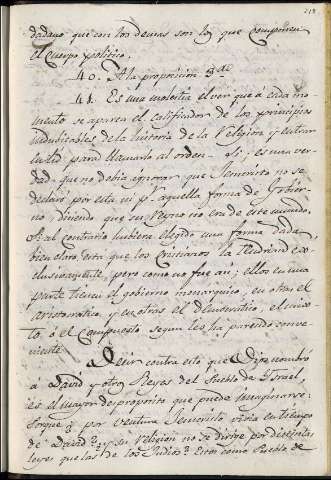 218
dadano que con los demas son los que componen
el Cuerpo politico.
40. A la proposicion 3.ᵃ
41. Es una molestia el ver que á cada mo-
mento se aparta el calificador de los principios
indubitables de la historia de la Religion y entrar
en lid para llamarlo al orden. Si; es una ver-
dad que no debia ignorar que Jesucristo no se
declaró por esta ni pʳ aquella forma de Gobier-
no, diciendo que su Reyno no era de este mundo.
Si al contrario hubiera elegido una forma dada
bien claro está que los Cristianos la tendrian ex-
clusivamente, pero como no fue asi; ellos en una
parte tienen el gobierno monarquico, en otras el
aristocratico, y en otras el democratico, el mix-
to, ó el Compuesto segun les ha parecido conve-
niente.
Decir contra esto que Dios nombró
á David y otros Reyes del Pueblo de Israel,
es el mayor desproposito que puede imaginarse:
Porque ¿por ventura Jesucristo vivia en tiempo
de David? ¿y su Religion no se dirige por distintas
leyes que las de los Judios? Estos como Pueblo de